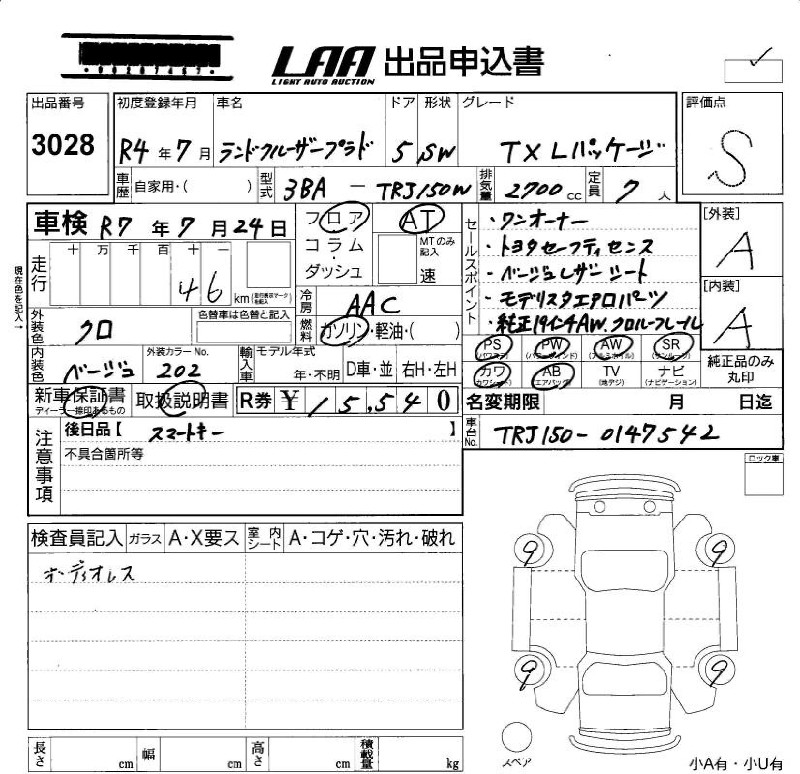 *00207467*
LAA 出品申込書
LIGHT AUTO AUCTION
出品番号 初度登録年月 車名 ドア 形状 グレード 評価点
3028 R4 年 7 月 ランドクルーザープラド 5 SW TX Lパッケージ S
車歴 自家用・( ) 型式 3BA - TRJ150W 排気量 2700 cc 定員 7 人
車検 R7 年 7 月 24 日 フロア AT セールスポイント ・ワンオーナー [外装]
十 万 千 百 十 一 コラム MTのみ記入 ・トヨタセーフティセンス A
走行 46 km ・ダッシュ 速 ・ベージュレザーシート
現在色を記入→ 冷房 AAC ・モデリスタエアロパーツ [内装]
外装色 クロ 色替車は色替と記入 燃料 ガソリン・軽油・( ) ・純正19インチAW.クロルーフレール A
内装色 ベージュ 外装カラーNo. 202 輸入車 モデル年式 年・不明 D車・並 右H・左H
PS (パワステ) PW (パワーウインド) AW (アルミホイル) SR (サンルーフ) 純正品のみ
カワ (カワシート) AB (エアバッグ) TV (地デジ) ナビ (ナビゲーション) 丸印
新車保証書 取扱説明書 R券 ¥ 15,540 名変期限 月 日迄
ディーラー捺印あるもの
注意事項 後日品【 スマートキー 】 車台No. TRJ150-0147542
不具合箇所等 ロック車
検査員記入 ガラス A・X要ス 室内シート A・コゲ・穴・汚れ・破れ
ボーディオレス
9 9
9 9
スペア
長さ cm 幅 cm 高さ cm 積載量 kg 小A有・小U有